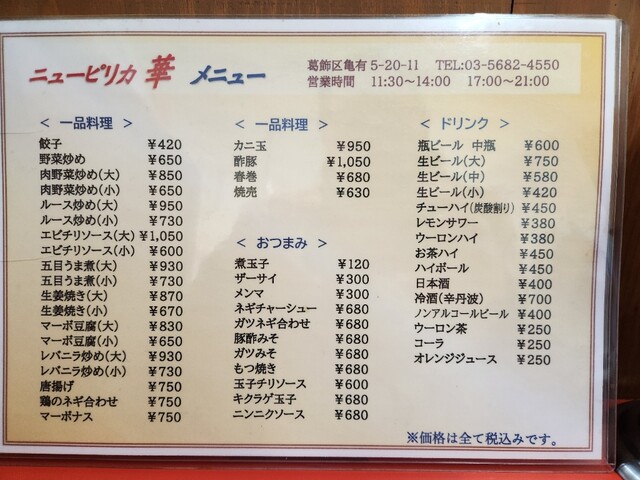 ニューピリカ 華 メニュー
葛飾区亀有 5-20-11 TEL:03-5682-4550
営業時間 11:30〜14:00 17:00〜21:00
＜ 一品料理 ＞
餃子 ¥420
野菜炒め ¥650
肉野菜炒め(大) ¥850
肉野菜炒め(小) ¥650
ルース炒め(大) ¥950
ルース炒め(小) ¥730
エビチリソース(大) ¥1,050
エビチリソース(小) ¥600
五目うま煮(大) ¥930
五目うま煮(小) ¥730
生姜焼き(大) ¥870
生姜焼き(小) ¥670
マーボ豆腐(大) ¥830
マーボ豆腐(小) ¥650
レバニラ炒め(大) ¥930
レバニラ炒め(小) ¥730
唐揚げ ¥750
鶏のネギ合わせ ¥750
マーボナス ¥750
＜ 一品料理 ＞
カニ玉 ¥950
酢豚 ¥1,050
春巻 ¥680
焼売 ¥630
＜ おつまみ ＞
煮玉子 ¥120
ザーサイ ¥300
メンマ ¥300
ネギチャーシュー ¥680
ガツネギ合わせ ¥680
豚酢みそ ¥680
ガツみそ ¥680
もつ焼き ¥680
玉子チリソース ¥600
キクラゲ玉子 ¥680
ニンニクソース ¥680
＜ ドリンク ＞
瓶ビール 中瓶 ¥600
生ビール(大) ¥750
生ビール(中) ¥580
生ビール(小) ¥420
チューハイ(炭酸割り) ¥450
レモンサワー ¥380
ウーロンハイ ¥380
お茶ハイ ¥450
ハイボール ¥450
日本酒 ¥400
冷酒(辛丹波) ¥700
ノンアルコールビール ¥400
ウーロン茶 ¥250
コーラ ¥250
オレンジジュース ¥250
※価格は全て税込みです。